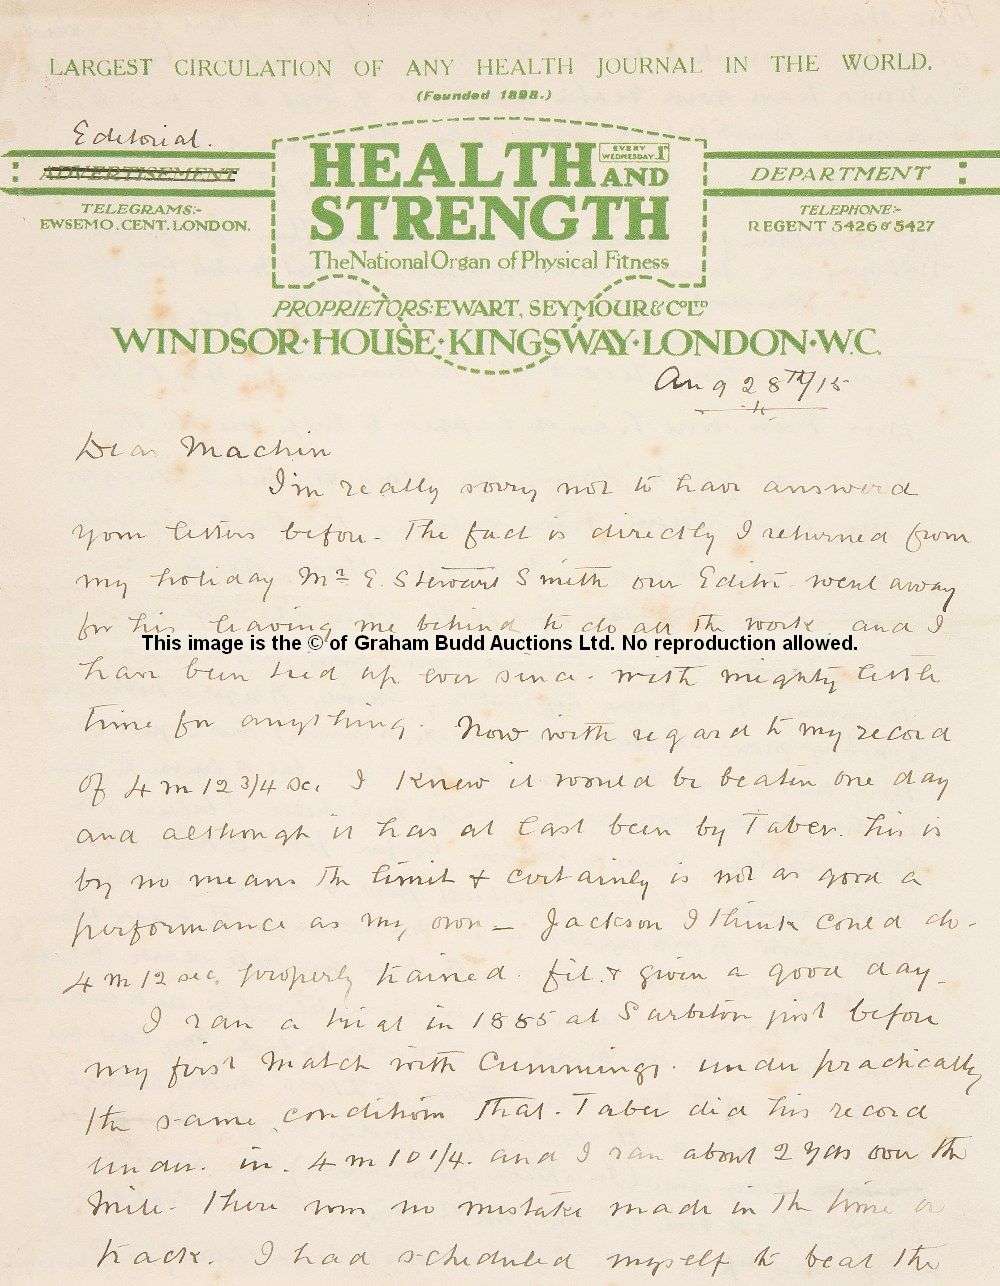 LARGEST CIRCULATION OF ANY HEALTH JOURNAL IN THE WORLD.
(Founded 1898.)
Editorial.
ADVERTISEMENT
HEALTH AND
EVERY WEDNESDAY 1D
STRENGTH
DEPARTMENT
TELEGRAMS:-
EWSEMO. CENT. LONDON.
The National Organ of Physical Fitness
TELEPHONE:-
REGENT 5426 & 5427
PROPRIETORS: EWART, SEYMOUR & Co LTD
WINDSOR·HOUSE·KINGSWAY·LONDON·W.C.
Aug 28TH/15
Dear Machin
I'm really sorry not to have answered
your letters before - The fact is directly I returned from
my holiday Mr E. Stewart Smith our Editor went away
for his leaving me behind to do all the work and I
This image is the © of Graham Budd Auctions Ltd. No reproduction allowed.
have been tied up ever since - with mighty little
time for anything. Now with regard to my record
of 4 m 12 3/4 sec. I knew it would be beaten one day
and although it has at last been by Taber. his is
by no means the limit & certainly is not as good a
performance as my own - Jackson I think could do -
4 m 12 sec, properly trained. fit. & given a good day -
I ran a trial in 1885 at Surbiton just before
my first match with Cummings. under practically
the same conditions that. Taber did his record
under. in. 4 m 10 1/4. and I ran about 2 yds over the
mile - There was no mistake made in the time or
track. I had scheduled myself to beat the